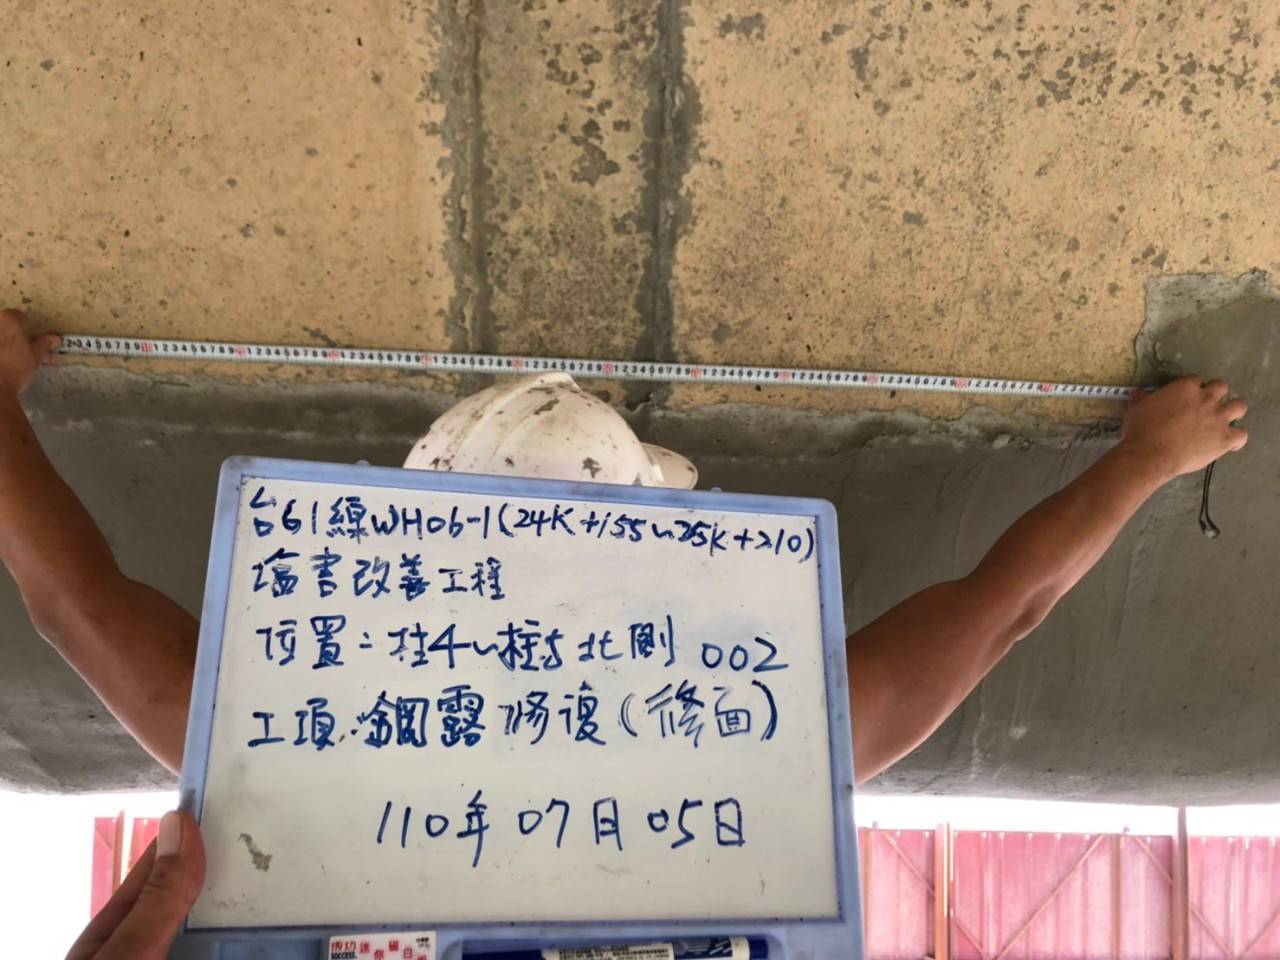 台61線WH06-1(24K+155~25K+210)
塩害改善工程
位置:柱4~柱5北側 002
工項:鋼露修復(修面)
110年07月05日
成功 迷你磁白板
SUCCESS